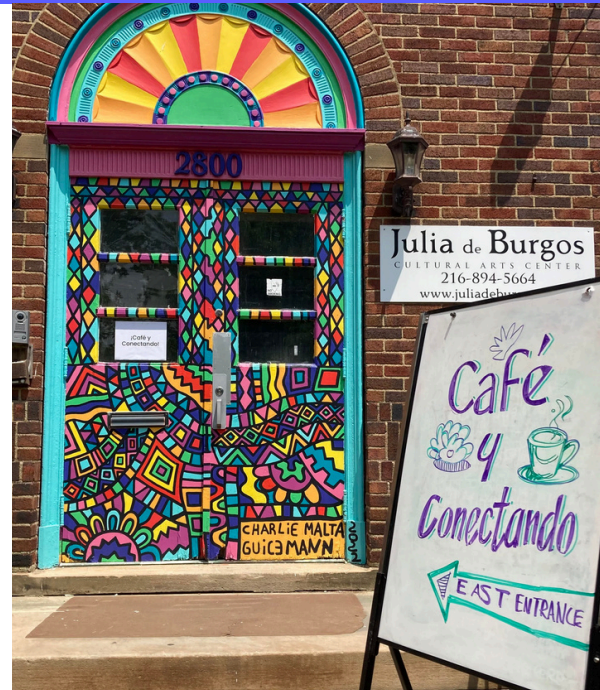 2800
Julia de Burgos
CULTURAL ARTS CENTER
216-894-5664
¡Café y
Conectando!
CHARLIE MALTA
GUICEMANN
Café
y
Conectando
EAST ENTRANCE